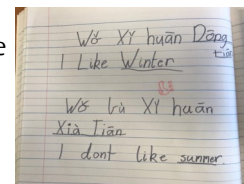 e
Wǒ XǏ huān Dōng
tiān
I Like Winter
Wǒ bù XǏ huān
Xià Tiān
I dont like summer.